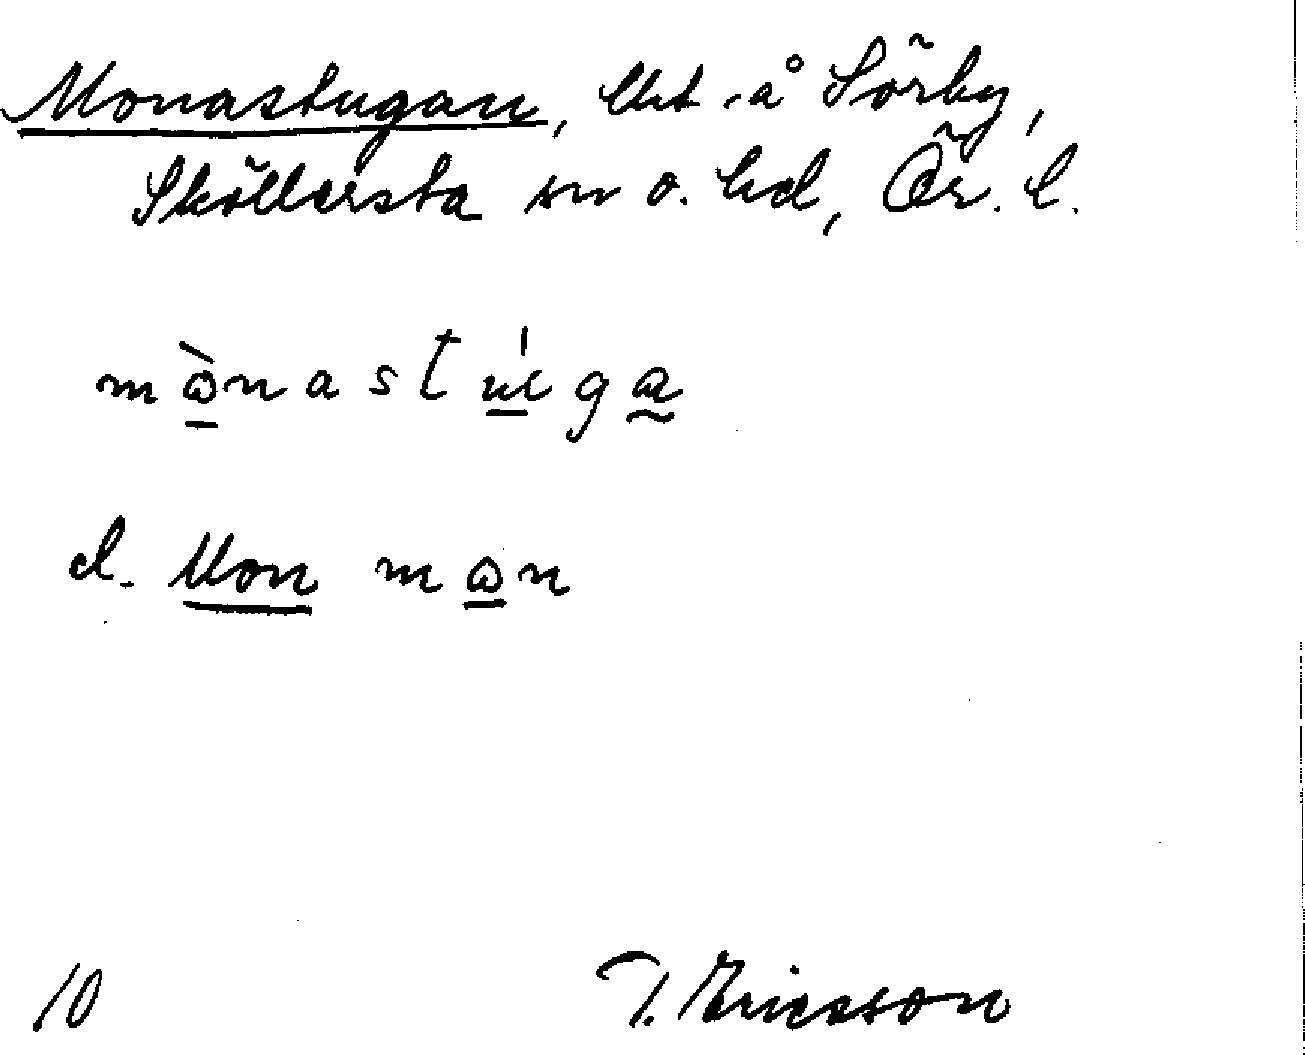 Monastugan, lht å Sörby,
Sköllersta sn o. hd, Ör. l.
mὼ̲nastú̲ga̰
el. Mon mω̲n
10 T. Ericsson